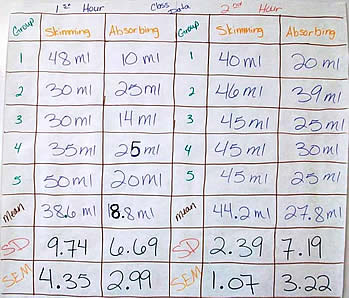 1st Hour Class Data 2nd Hour
Group Skimming Absorbing Group Skimming Absorbing
1 48 ml 10 ml 1 40 ml 20 ml
2 30 ml 25 ml 2 46 ml 39 ml
3 30 ml 14 ml 3 45 ml 25 ml
4 35 ml 25 ml 4 45 ml 30 ml
5 50 ml 20 ml 5 45 ml 25 ml
mean 38.6 ml 18.8 ml mean 44.2 ml 27.8 ml
SD 9.74 6.69 SD 2.39 7.19
SEM 4.35 2.99 SEM 1.07 3.22